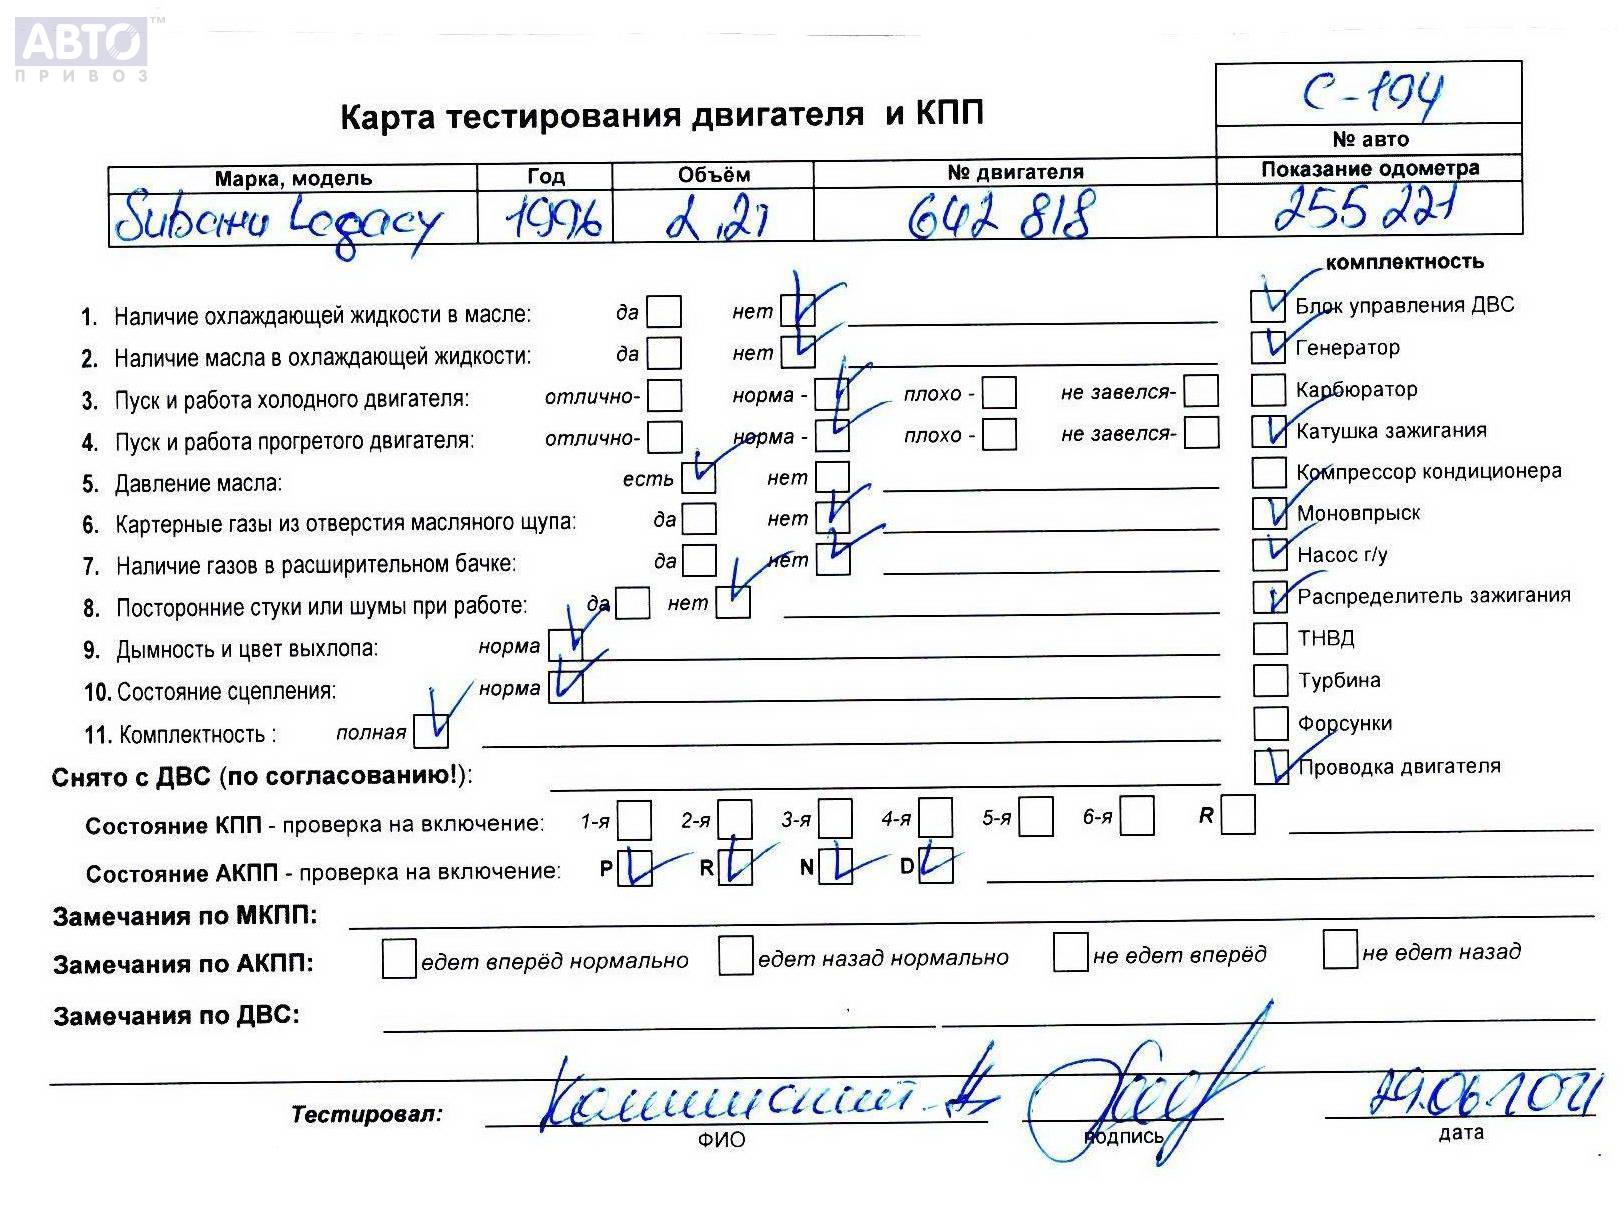 АВТО™
ПРИВОЗ
С-194
Карта тестирования двигателя и КПП
№ авто
Марка, модель Год Объём № двигателя Показание одометра
Subaru Legacy 1996 2,2i 642 818 255 221
комплектность
1. Наличие охлаждающей жидкости в масле: да нет
Блок управления ДВС
2. Наличие масла в охлаждающей жидкости: да нет
Генератор
3. Пуск и работа холодного двигателя: отлично- норма - плохо - не завелся-
Карбюратор
4. Пуск и работа прогретого двигателя: отлично- норма - плохо - не завелся-
Катушка зажигания
5. Давление масла: есть нет
Компрессор кондиционера
6. Картерные газы из отверстия масляного щупа: да нет
Моновпрыск
7. Наличие газов в расширительном бачке: да нет
Насос г/у
8. Посторонние стуки или шумы при работе: да нет
Распределитель зажигания
9. Дымность и цвет выхлопа: норма
ТНВД
10. Состояние сцепления: норма
Турбина
11. Комплектность : полная
Форсунки
Снято с ДВС (по согласованию!):
Проводка двигателя
Состояние КПП - проверка на включение: 1-я 2-я 3-я 4-я 5-я 6-я R
Состояние АКПП - проверка на включение: P R N D
Замечания по МКПП:
Замечания по АКПП: едет вперёд нормально едет назад нормально не едет вперёд не едет назад
Замечания по ДВС:
Тестировал: 29.06.2021
ФИО подпись дата